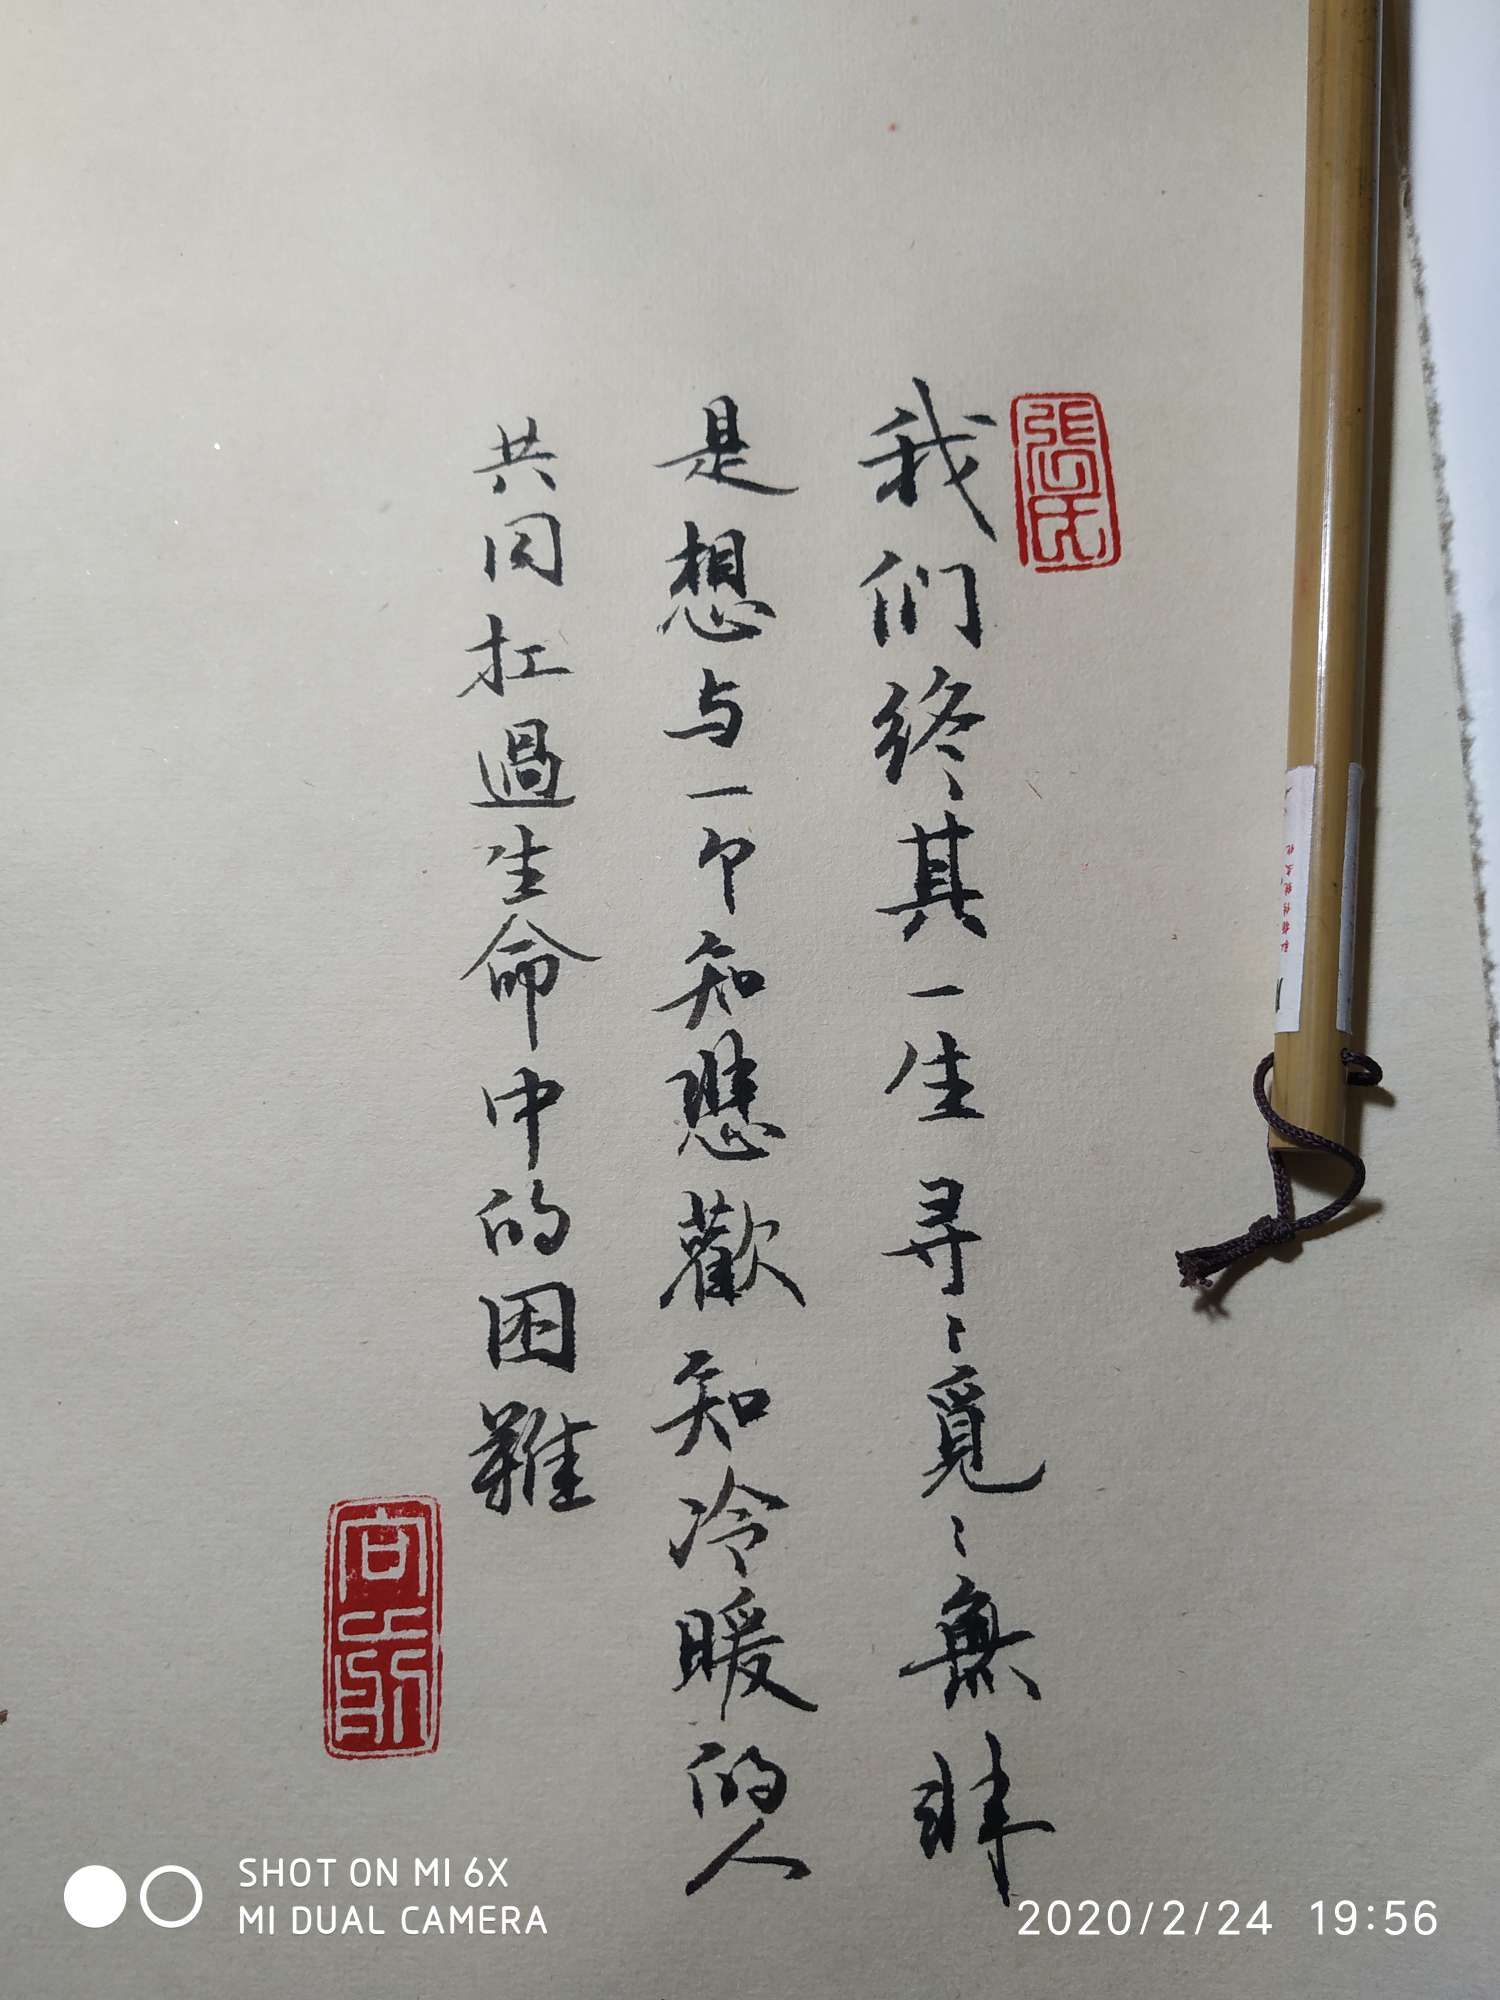 张氏
我们终其一生寻〻觅〻無非
是想与一个知悲歡知冷暖的人
共同扛過生命中的困難
向上
SHOT ON MI 6X
MI DUAL CAMERA
2020/2/24 19:56